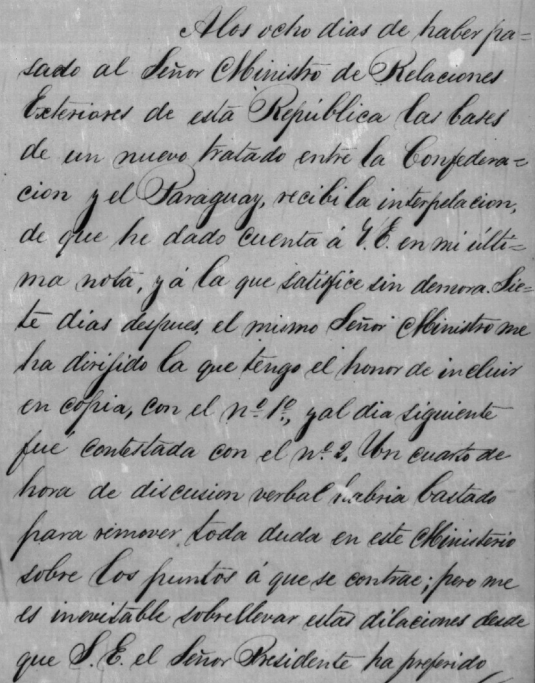 A los ocho dias de haber pa=
sado al Señor Ministro de Relaciones
Exteriores de esta República las bases
de un nuevo tratado entre la Confedera=
cion y el Paraguay, recibi la interpelacion,
de que he dado cuenta á V. E. en mi últi=
ma nota, y á la que satisfice sin demora. Sie=
te dias despues, el mismo Señor Ministro me
ha dirijido la que tengo el honor de incluir
en copia, con el nº 1º, y al dia siguiente
fué contestada con el nº 2. Un cuarto de
hora de discusion verbal habria bastado
para remover toda duda en este Ministerio
sobre los puntos á que se contrae; pero me
es inevitable sobrellevar estas dilaciones desde
que S. E. el Señor Presidente ha preferido